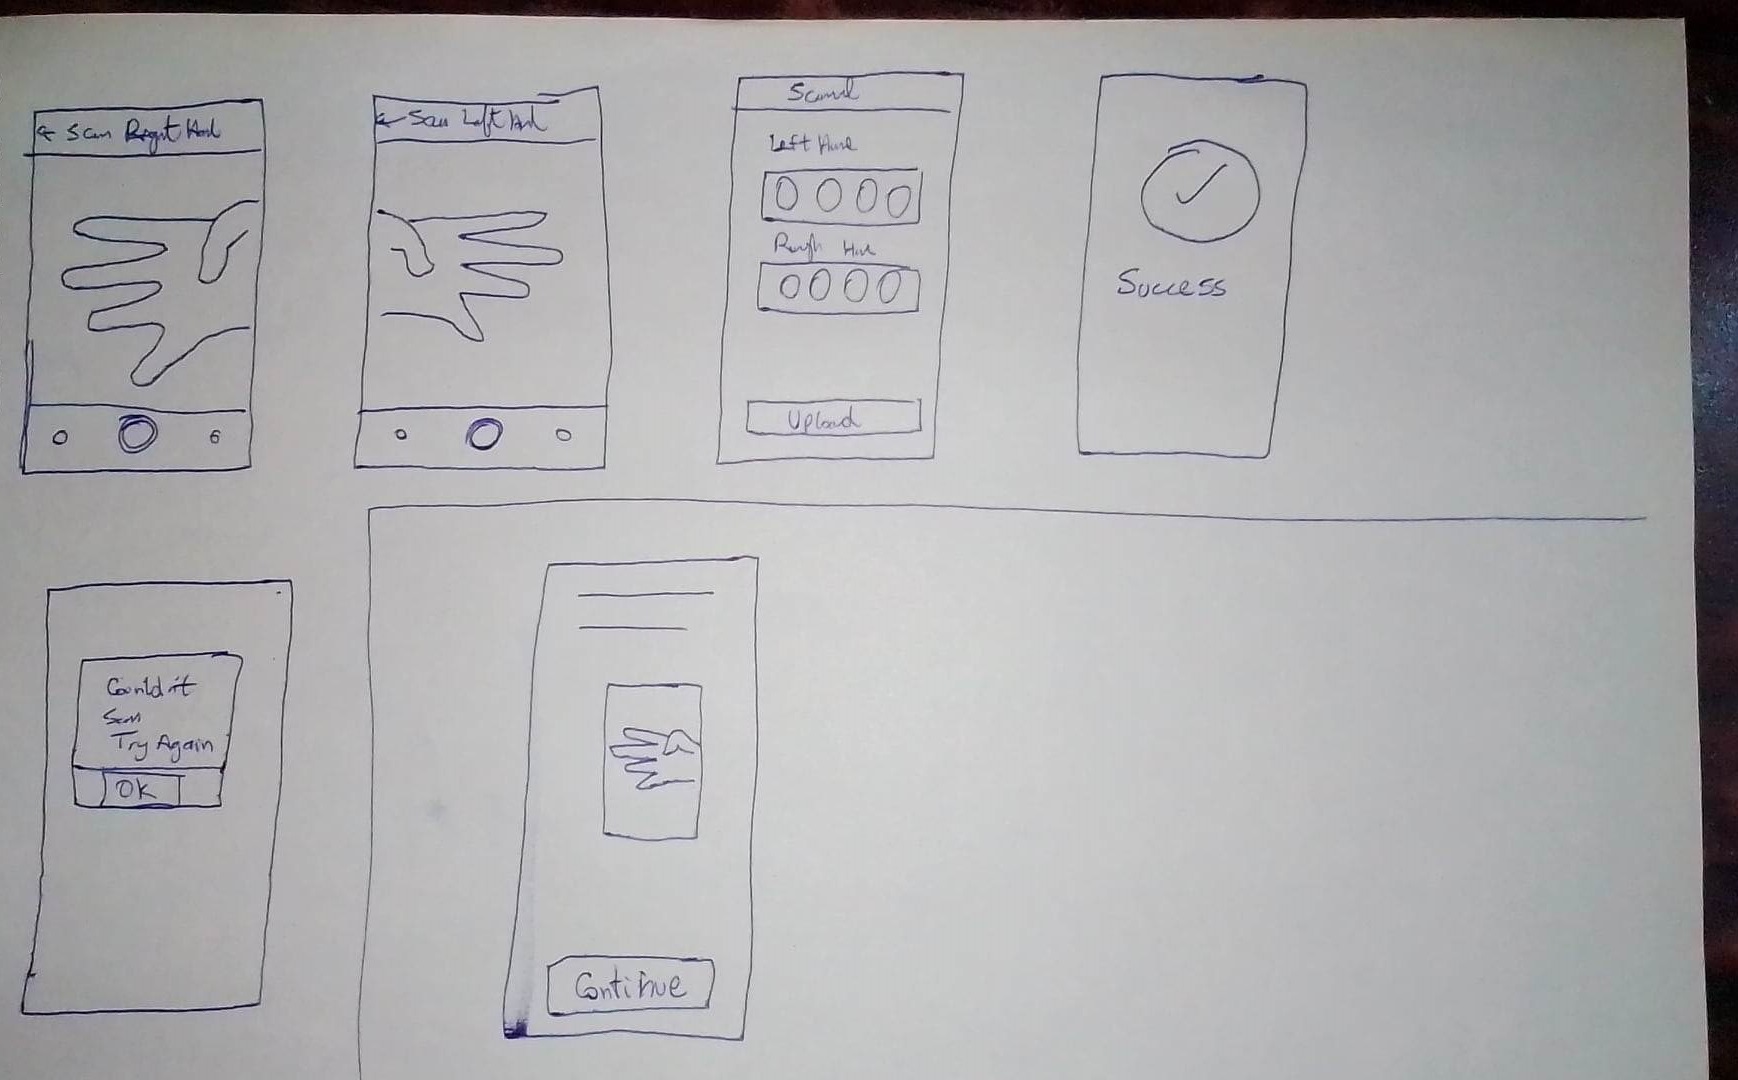 ← Scan Right Hand
← Scan Left Hand
Left Hand
Right Hand
Upload
Success
Couldn't
Scan
Try Again
OK
Continue